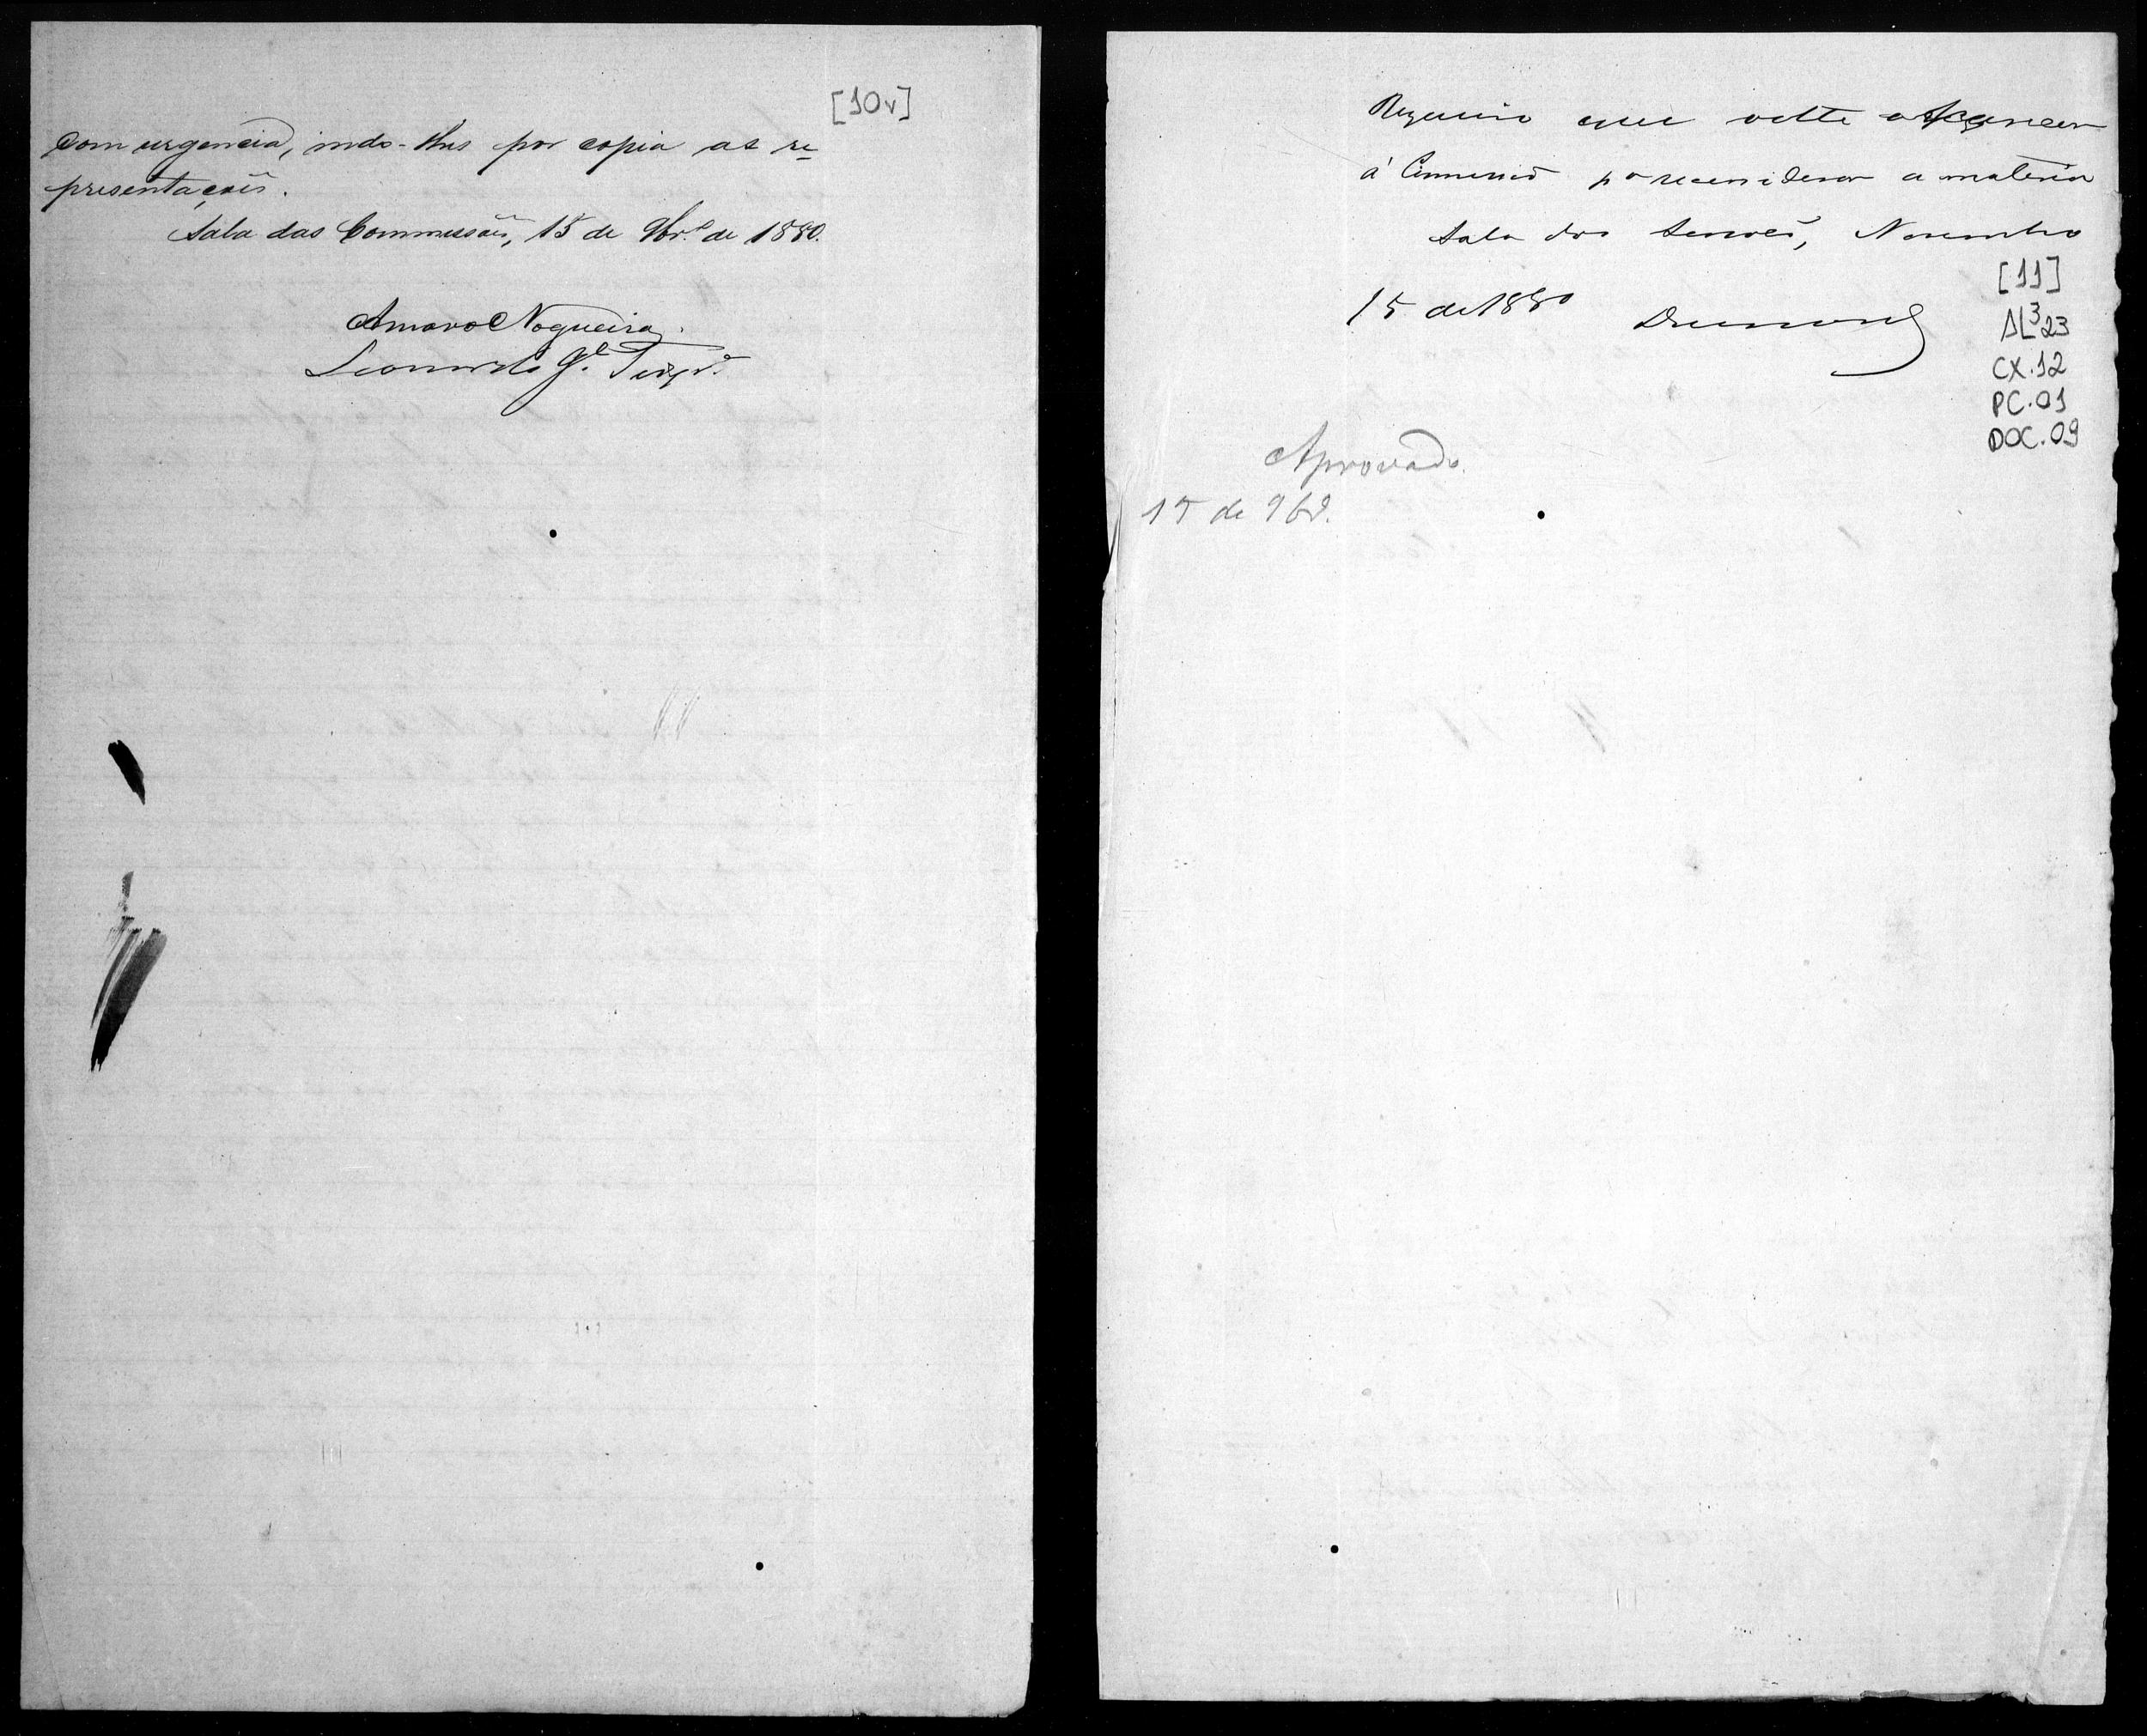 [10v]
com urgencia, indo-lhes por copia as re-
presentações.
Sala das Commissões, 15 de 9br.º de 1880.
Amaro Nogueira.
Leonardo
Requeiro que volte o parecer
á Commissão pª reconsiderar a materia
Sala das Sessões, Novembro
15 de 1880
Drumond
[11]
AL³23
CX.12
PC.01
DOC.09
Aprovado.
15 de 9bº.